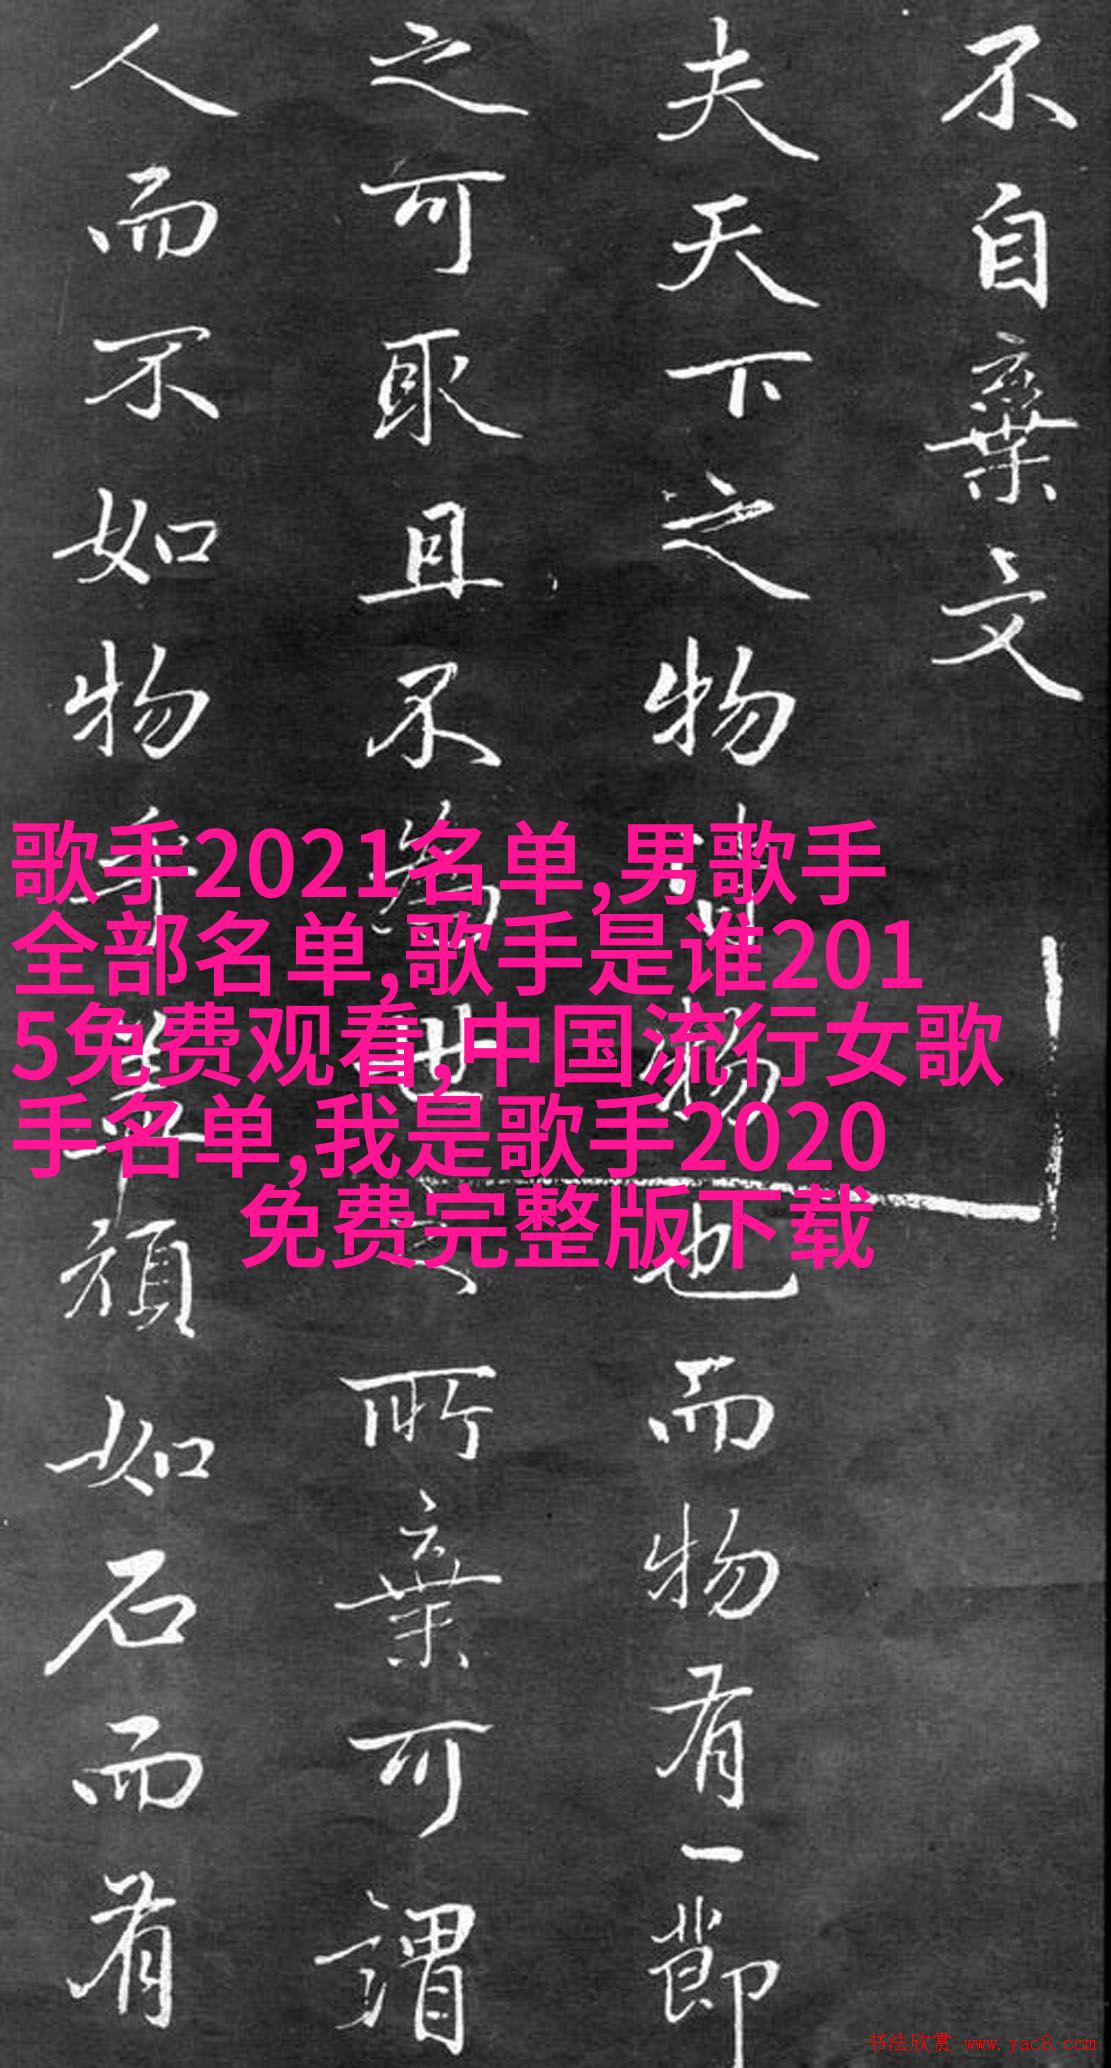 不自棄文
夫天下之物皆物也而物有一節
之可取且不為世之所棄可謂
人而不如物乎蓋頑如石而有
歌手2021名单,男歌手
全部名单,歌手是谁201
5免费观看,中国流行女歌
手名单,我是歌手2020
免费完整版下载
书法欣赏 www.yac8.com